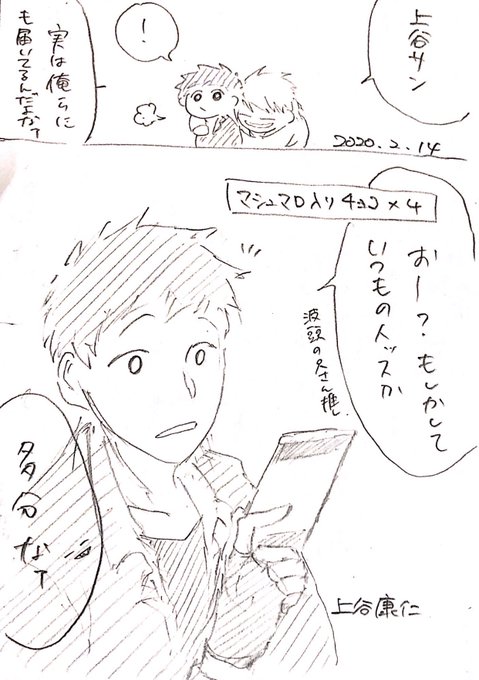 上谷サン
!
実は俺らに
も届いてるんだよなァ
2020.2.14
マシュマロ入りチョコ×4
おー?もしかして
いつもの人ッスか
多分なァ
上谷康仁